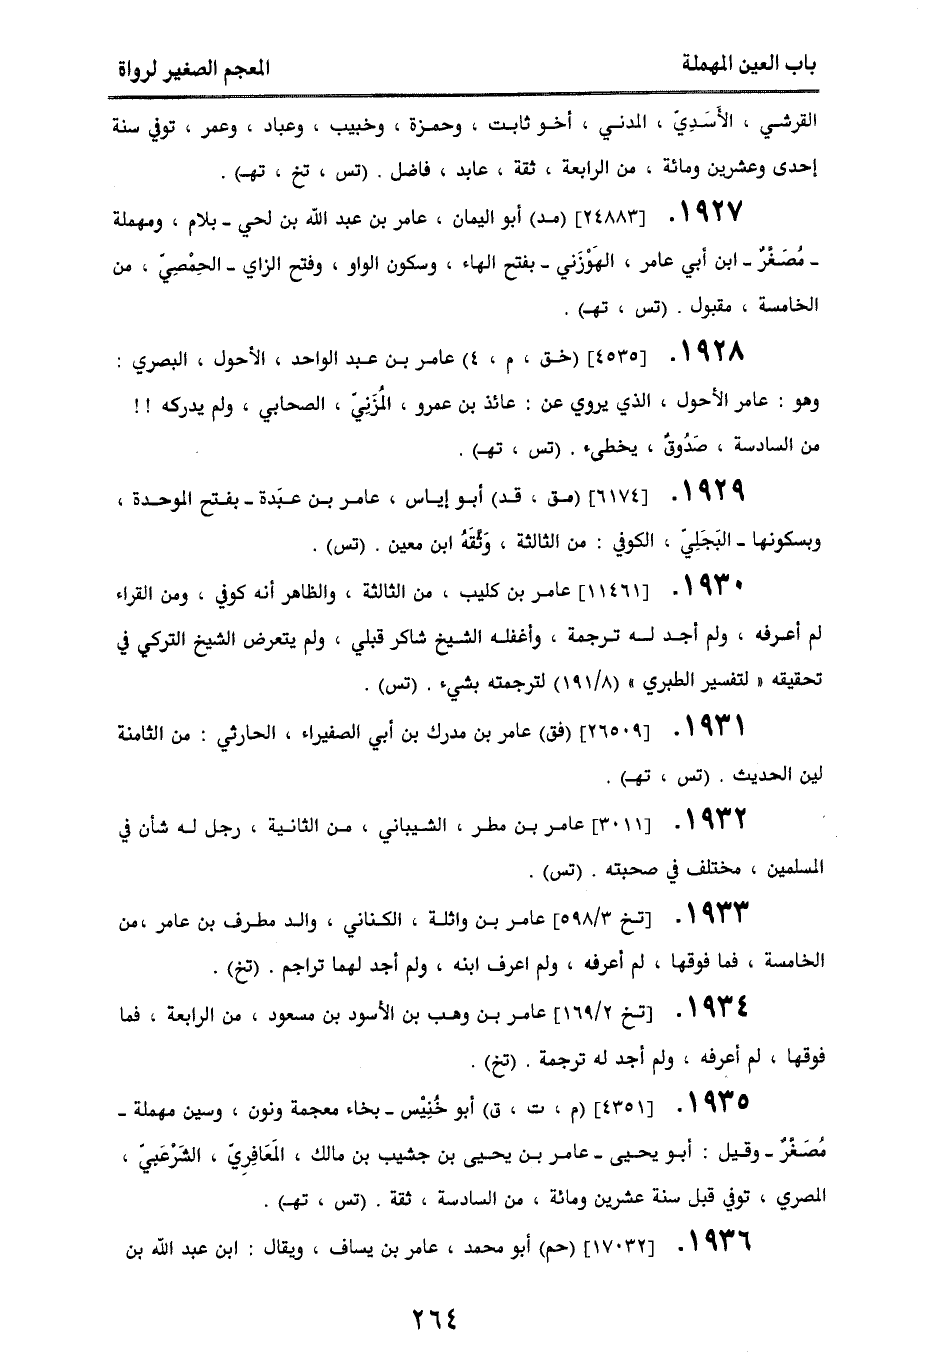 باب العين المهملة
المعجم الصغير لرواة
القرشي ، الأَسَدِيّ ، المدني ، أخو ثابت ، وحمزة ، وخبيب ، وعباد ، وعمر ، توفي سنة
إحدى وعشرين ومائة ، من الرابعة ، ثقة ، عابد ، فاضل . (تس ، تخ ، تهـ) .
١٩٢٧. [٢٤٨٨٣] (مد) أبو اليمان ، عامر بن عبد الله بن لحي ـ بلام ، ومهملة
ـ مُصَغَّرٌ ـ ابن أبي عامر ، الهَوْزَني ـ بفتح الهاء ، وسكون الواو ، وفتح الزاي ـ الحِمْصِيّ ، من
الخامسة ، مقبول . (تس ، تهـ) .
١٩٢٨. [٤٥٣٥] (خق ، م ، ٤) عامر بن عبد الواحد ، الأحول ، البصري :
وهو : عامر الأحول ، الذي يروي عن : عائذ بن عمرو ، المُزَنِيّ ، الصحابي ، ولم يدركه ! !
من السادسة ، صَدُوقٌ ، يخطىء . (تس ، تهـ) .
١٩٢٩. [٦١٧٤] (مق ، قد) أبو إياس ، عامر بن عبَدة ـ بفتح الموحدة ،
وبسكونها ـ البَجَلِيّ ، الكوفي : من الثالثة ، وَثَّقَهُ ابن معين . (تس) .
١٩٣٠. [١١٤٦١] عامر بن كليب ، من الثالثة ، والظاهر أنه كوفي ، ومن القراء
لم أعرفه ، ولم أجد له ترجمة ، وأغفله الشيخ شاكر قبلي ، ولم يتعرض الشيخ التركي في
تحقيقه « لتفسير الطبري » (١٩١/٨) لترجمته بشيء . (تس) .
١٩٣١. [٢٦٥٠٩] (فق) عامر بن مدرك بن أبي الصفيراء ، الحارثي : من الثامنة
لين الحديث . (تس ، تهـ) .
١٩٣٢. [٣٠١١] عامر بن مطر ، الشيباني ، من الثانية ، رجل له شأن في
المسلمين ، مختلف في صحبته . (تس) .
١٩٣٣. [تخ ٥٩٨/٣] عامر بن واثلة ، الكناني ، والد مطرف بن عامر ،من
الخامسة ، فما فوقها ، لم أعرفه ، ولم اعرف ابنه ، ولم أجد لهما تراجم . (تخ) .
١٩٣٤. [تخ ١٦٩/٢] عامر بن وهب بن الأسود بن مسعود ، من الرابعة ، فما
فوقها ، لم أعرفه ، ولم أجد له ترجمة . (تخ) .
١٩٣٥. [٤٣٥١] (م ، ت ، ق) أبو خُنِيْس ـ بخاء معجمة ونون ، وسين مهملة ـ
مُصَغَّرٌ ـ وقيل : أبو يحيى ـ عامر بن يحيى بن جشيب بن مالك ، المَعَافِرِيّ ، الشَرْعَبيّ ،
المصري ، توفي قبل سنة عشرين ومائة ، من السادسة ، ثقة . (تس ، تهـ) .
١٩٣٦. [١٧٠٣٢] (حم) أبو محمد ، عامر بن يساف ، ويقال : ابن عبد الله بن
٢٦٤